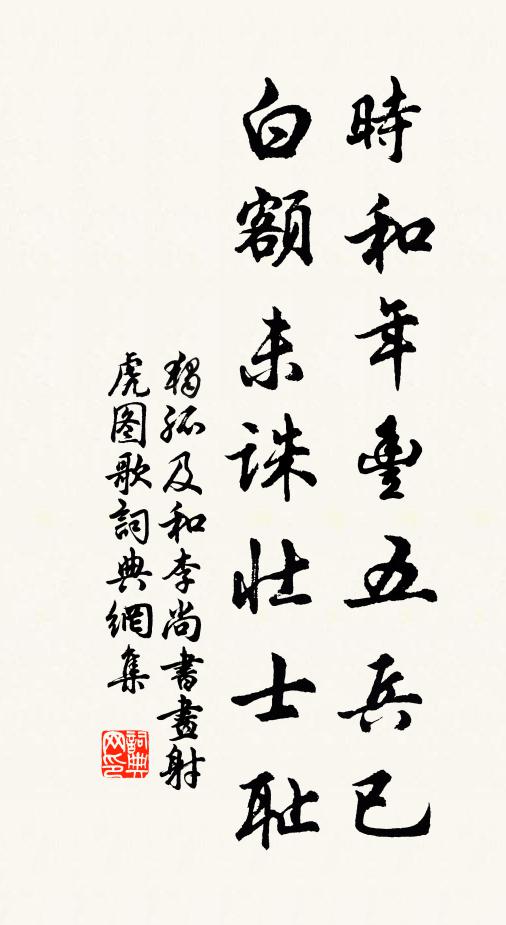 時和年豐五兵已
白額未誅壯士耻
獨孤及和李尚書畫射
虎图歌詞典網集
詞典
网印